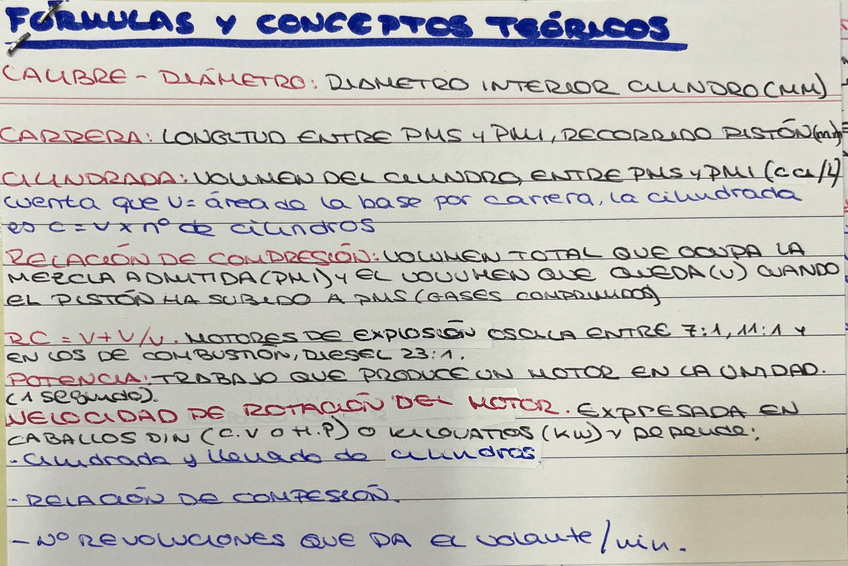 FÓRMULAS Y CONCEPTOS TEÓRICOS
CALIBRE - DIÁMETRO: DIÁMETRO INTERIOR CILINDRO (MM)
CARRERA: LONGITUD ENTRE PMS Y PMI, RECORRIDO PISTÓN (mm)
CILINDRADA: VOLUMEN DEL CILINDRO, ENTRE PMS Y PMI (CC/L)
cuenta que V = área de la base por carrera, la cilindrada
es C = V x nº de cilindros
RELACIÓN DE COMPRESIÓN: VOLUMEN TOTAL QUE OCUPA LA
MEZCLA ADMITIDA (PMI) Y EL VOLUMEN QUE QUEDA (V) CUANDO
EL PISTÓN HA SUBIDO A PMS (GASES COMPRIMIDOS)
RC = V + V/V. MOTORES DE EXPLOSIÓN OSCILA ENTRE 7:1, 11:1 Y
EN LOS DE COMBUSTIÓN, DIESEL 23:1.
POTENCIA: TRABAJO QUE PRODUCE UN MOTOR EN LA UNIDAD.
(1 segundo).
VELOCIDAD DE ROTACIÓN DEL MOTOR. EXPRESADA EN
CABALLOS DIN (C.V O H.P) O KILOVATIOS (KW) Y Depende:
- Cilindrada y llenado de cilindros.
- RELACIÓN DE COMPESIÓN.
- Nº REVOLUCIONES QUE DA EL volante/min.